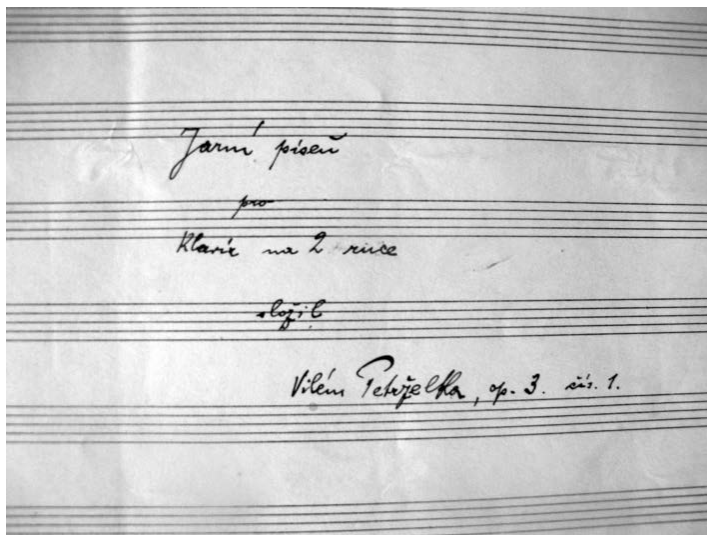 Jarní píseň
pro
Klavír na 2 ruce
složil
Vilém Petrželka, op. 3. čís. 1.